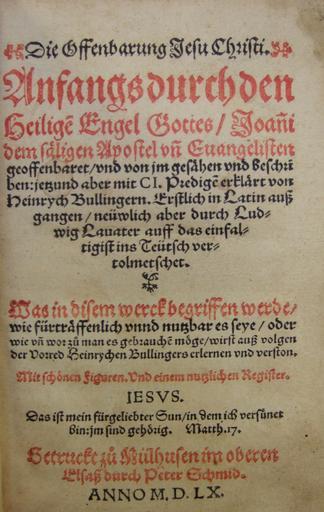 Die Offenbarung Jesu Christi.
Anfangs durch den
Heiligē Engel Gottes / Joañi
dem säligen Apostel vñ Euangelisten
geoffenbaret / vnd von jm gesähen vnd beschri
ben: jetzund aber mit CI. Predigē erklärt von
Heinrych Bullingern. Erstlich in Latin auß
gangen / neüwlich aber durch Lud-
wig Lauater auff das einfal-
tigist ins Teütsch ver-
tolmetschet.
Was in disem werck begriffen werde /
wie fürträffenlich vnnd nutzbar es seye / oder
wie vñ worzů man es gebrauchē möge / wirst auß volgen
der Vorred Heinrychen Bullingers erlernen vnd verston.
Mit schönen Figuren. Vnd einem nutzlichen Register.
IESVS.
Das ist mein fürgeliebter Sun / in dem ich versůnet
bin: jm sind gehörig. Matth. 17.
Getruckt zů Mülhusen im oberen
Elsaß durch Peter Schmid.
ANNO M. D. LX.